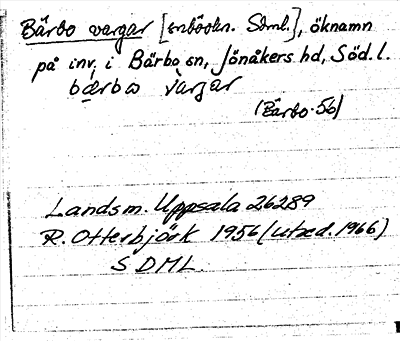 Bärbo vargar [snböckn. Sdml.], öknamn
på inv. i Bärbo sn, Jönåkers hd, Söd. l.
bærbω várgar
(Bärbo-56)
Landsm. Uppsala 26289
R. Otterbjörk 1956 (utred. 1966)
SDML.